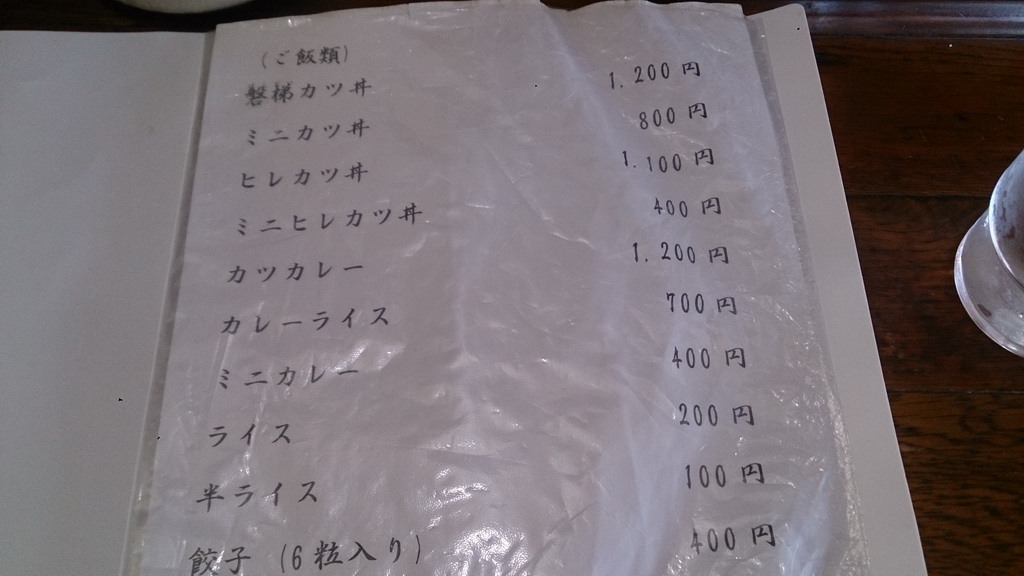 (ご飯類)
磐梯カツ丼 1.200円
ミニカツ丼 800円
ヒレカツ丼 1.100円
ミニヒレカツ丼 400円
カツカレー 1.200円
カレーライス 700円
ミニカレー 400円
ライス 200円
半ライス 100円
餃子 (6粒入り) 400円